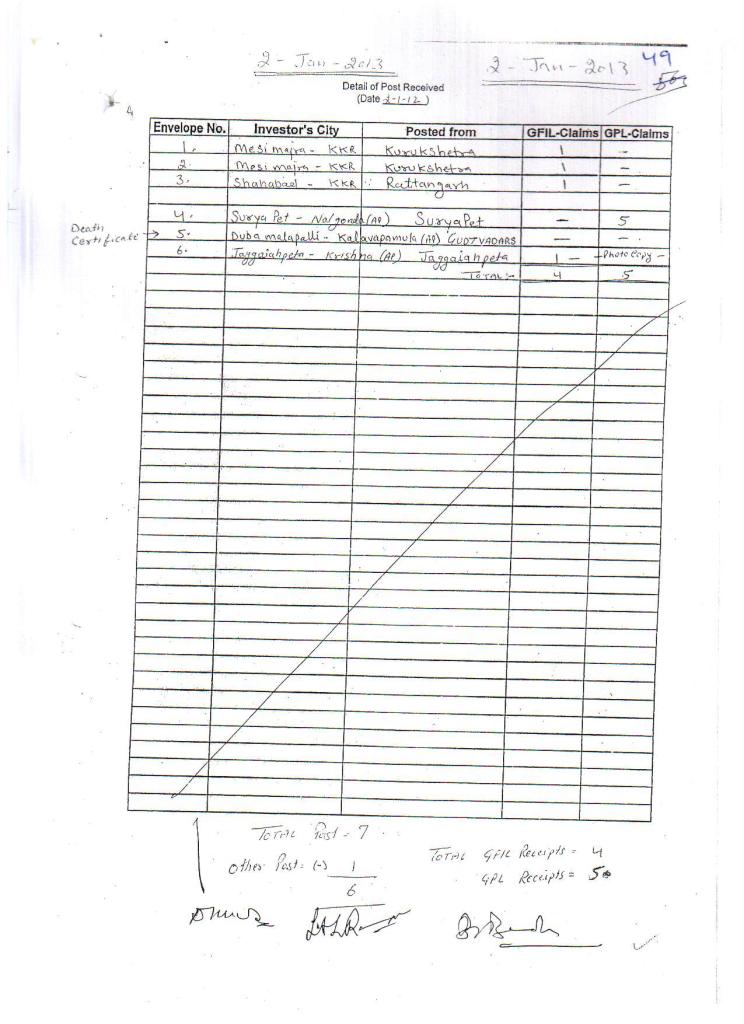 2 - Jan - 2013
2 - Jan - 2013 49
Detail of Post Received
(Date 2-1-12)
Envelope No. Investor's City Posted from GFIL-Claims GPL-Claims
1. Mesi majra - KKR Kurukshetra 1 -
2. Mesi majra - KKR Kurukshetra 1 -
3. Shahabad - KKR Rattangarh 1 -
4. Surya Pet - Nalgonda (AP) Surya Pet - 5
Death
Certificate → 5. Duba malapalli - Kalavapamula (AP) GUDIVADARS - -
6. Jaggaiahpeta - Krishna (AP) Jaggaiahpeta 1 - Photo Copy -
TOTAL:- 4 5
TOTAL Post = 7
Other Post = (-) 1
6
TOTAL GFIL Receipts = 4
GPL Receipts = 5